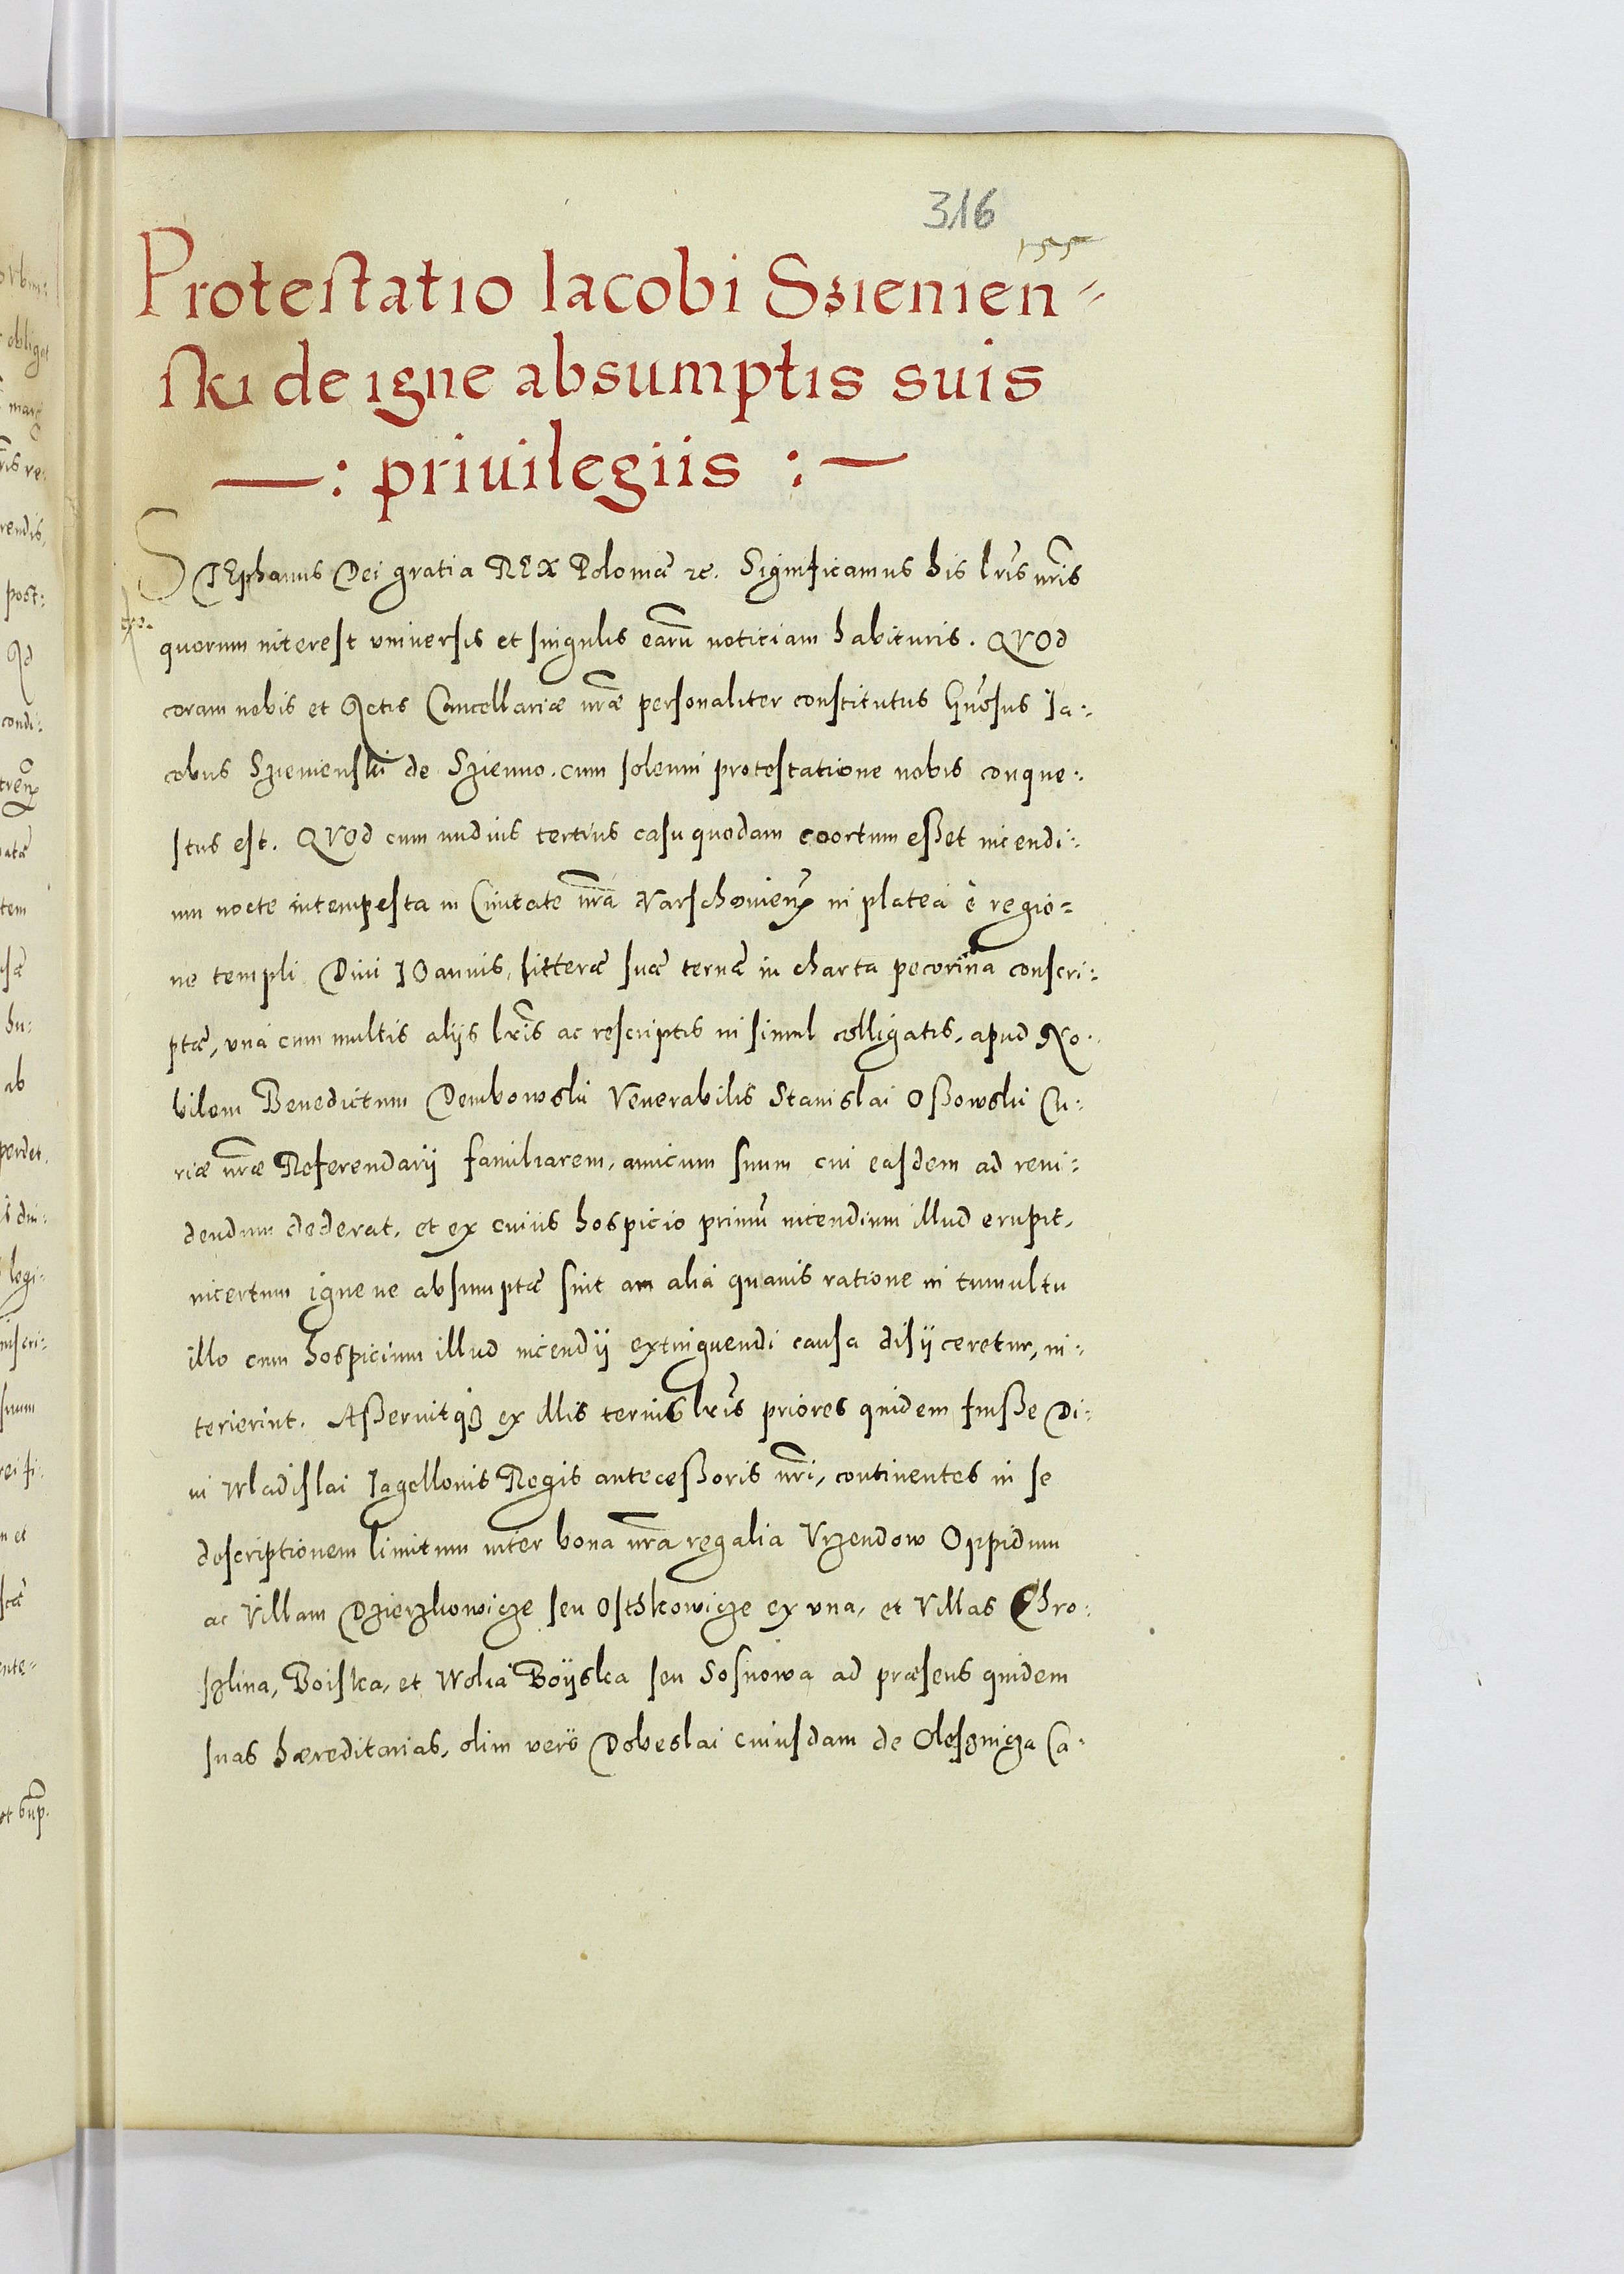 316
155
Protestatio Iacobi Szienien-
ski de igne absumptis suis
—: priuilegiis :—
STEphanus Dei gratia REX Poloniæ etc. Significamus his lr̃is nr̃is
quorum interest vniuersis et singulis earũ noticiam habituris. QVOd
coram nobis et Actis Cancellariæ nr̃æ personaliter constitutus Gñosus Ia:
cobus Szienienski de Szienno. cum solenni protestatione nobis conque:
stus est. QVOd cum nudius tertius casu quodam coortum eßet incendi:
um nocte intempesta in Ciuitate nr̃a Varschouien̄ in platea è regio=
ne templi Diui IOannis, litteræ suæ ternæ in charta pecorina conscri:
ptæ, vna cum multis alijs lr̃is ac rescriptis insimul colligatis, apud No:
bilem Benedictum Dembowski Venerabilis Stanislai Oßowski Cu:
riæ nr̃æ Referendarij familiarem, amicum suum cui easdem ad reui:
dendum dederat, et ex cuius hospicio primũ incendium illud erupit,
incertum igne ne absumptæ sint an alia quauis ratione in tumultu
illo cum hospicium illud incendij extinguendi causa disijceretur, in:
terierint. Aßeruitq3 ex illis ternis lr̃is priores quidem fuiße Di:
ui Wladislai Iagellonis Regis anteceßoris nr̃i, continentes in se
descriptionem limitum inter bona nr̃a regalia Vrzendow Oppidum
ac Villam Dzierzkowicze seu Ostskowicze ex vna, et Villas Chro:
szlina, Boiska, et Wolia Boijska seu Sosnowa ad præsens quidem
suas hæreditarias, olim verò Dobeslai cuiusdam de Olesznicza Ca: